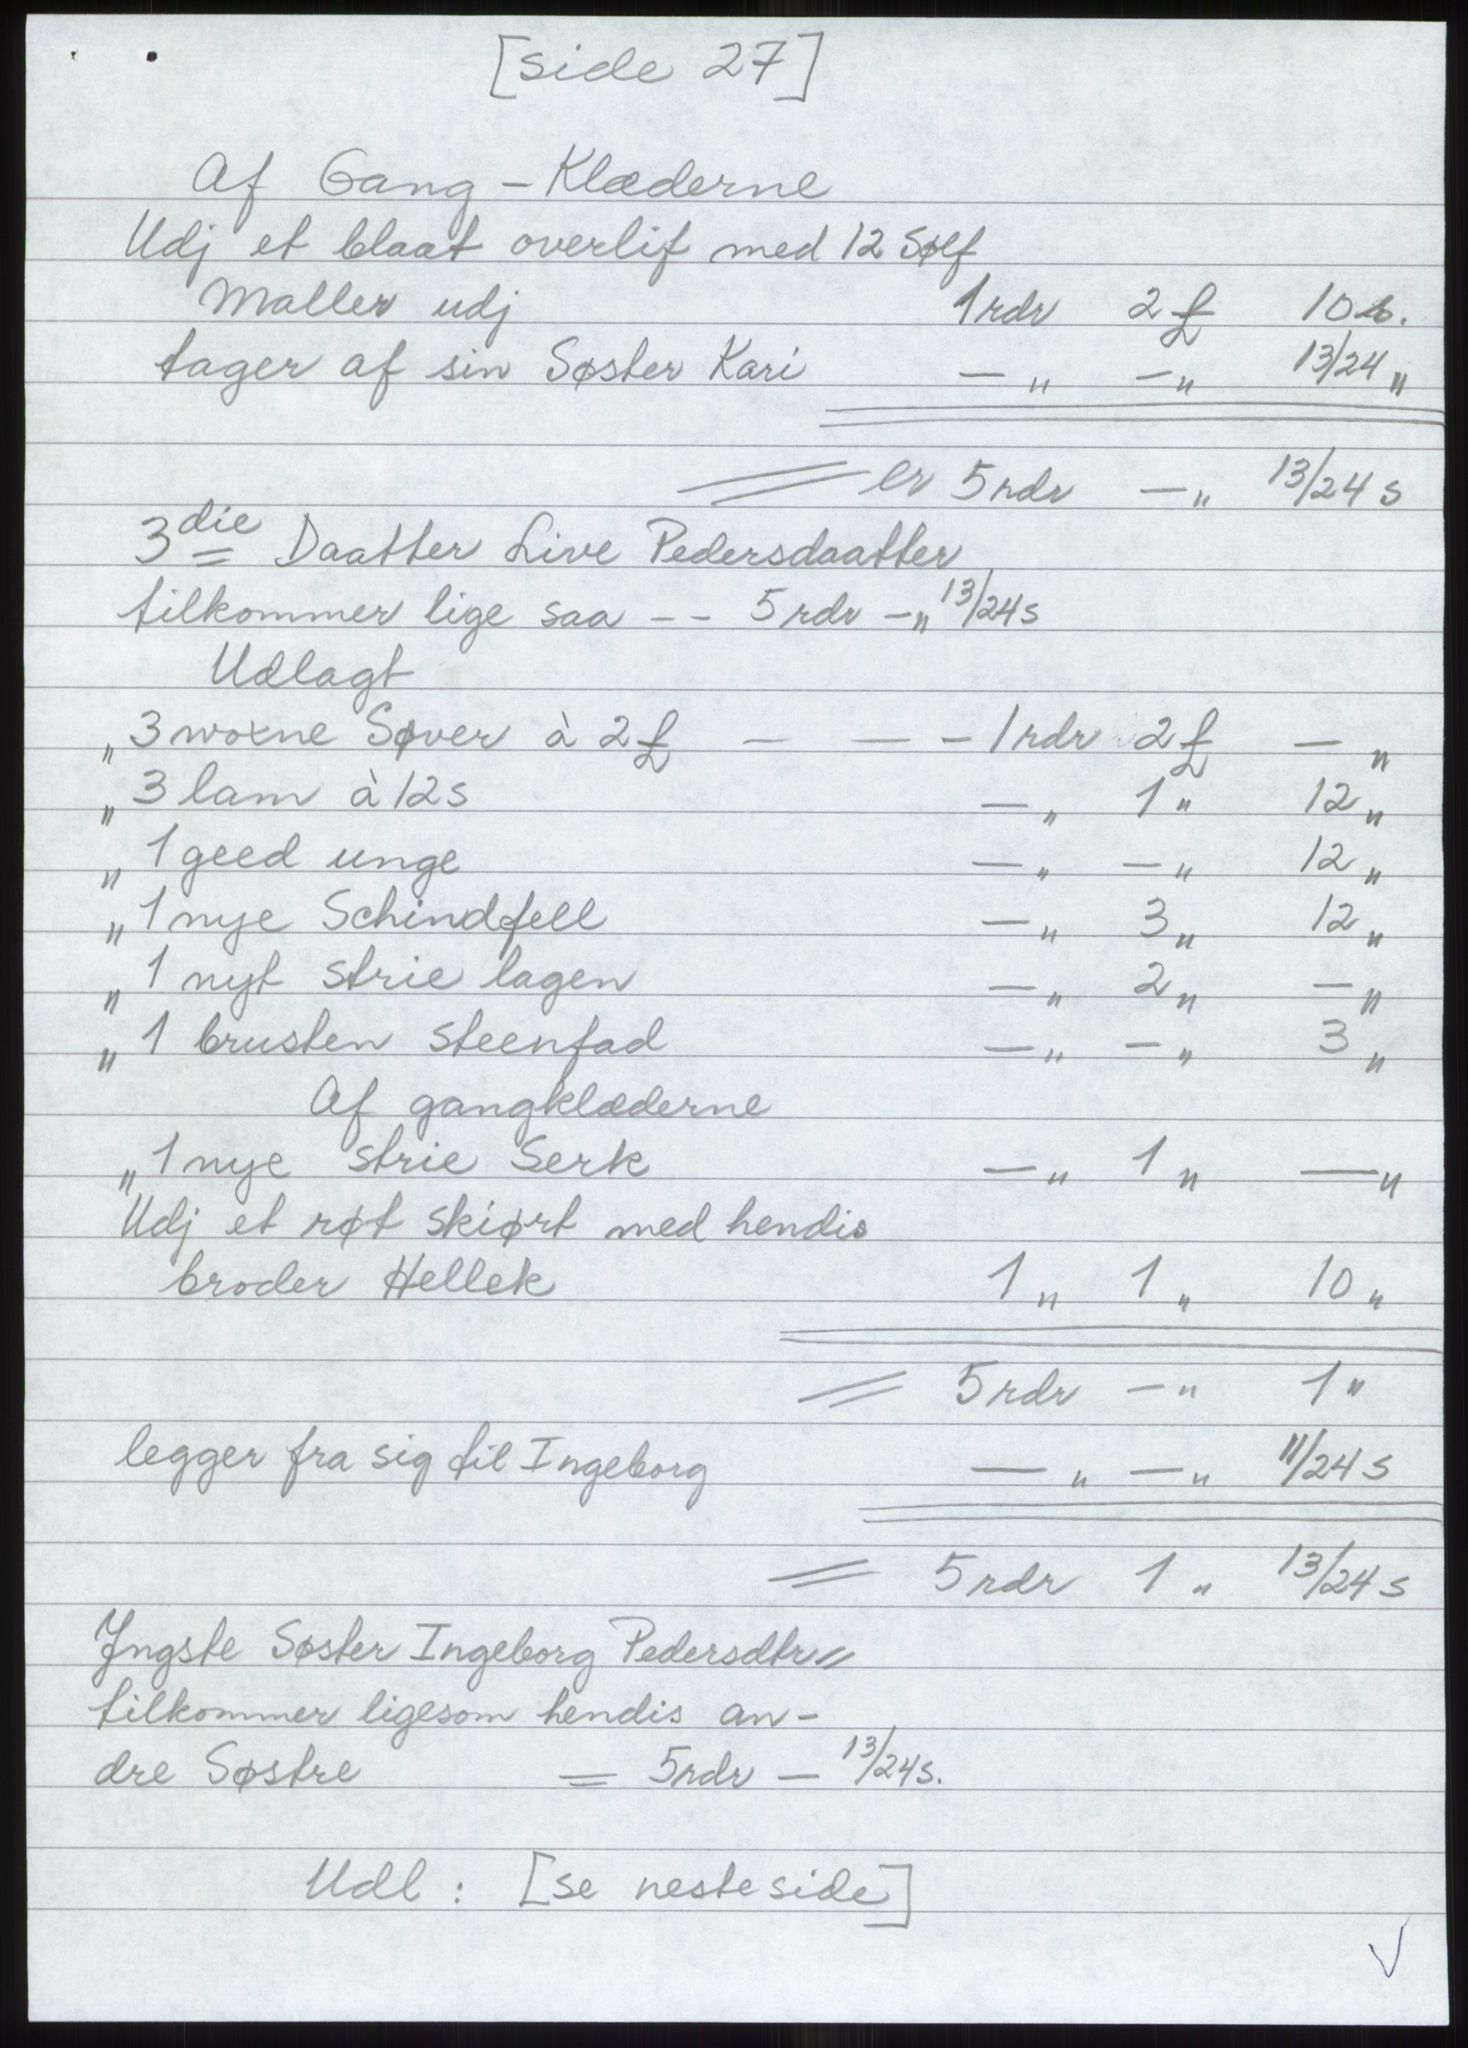 [side 27]
Af Gang - Klæderne
Udj et blaat overlif med 12 Sølf
Maller udj 1 rdr 2 £ 10 s.
tager af sin Søster Kari — „ — „ 13/24 „
er 5 rdr — „ 13/24 s
3die Daatter Live Pedersdaatter
tilkommer lige saa -- 5 rdr — „ 13/24 s
Udlagt
„ 3 woxne Søver à 2 £ — — - 1 rdr 2 £ — „
„ 3 lam à 12 s — „ 1 „ 12 „
„ 1 geed unge — „ — „ 12 „
„ 1 nye Schindfell — „ 3 „ 12 „
„ 1 nyt strie lagen — „ 2 „ — „
„ 1 brusten steenfad — „ — „ 3 „
Af gangklæderne
„ 1 nye strie Serk — „ 1 „ — „
Udj et røt skiørt med hendis
broder Hellek 1 „ 1 „ 10 „
= 5 rdr — „ 1 „
legger fra sig til Ingeborg — „ — „ 11/24 s
= 5 rdr 1 „ 13/24 s
Yngste Søster Ingeborg Pedersdtr //
tilkommer ligesom hendis an-
dre Søstre = 5 rdr — 13/24 s.
Udl : [se neste side]